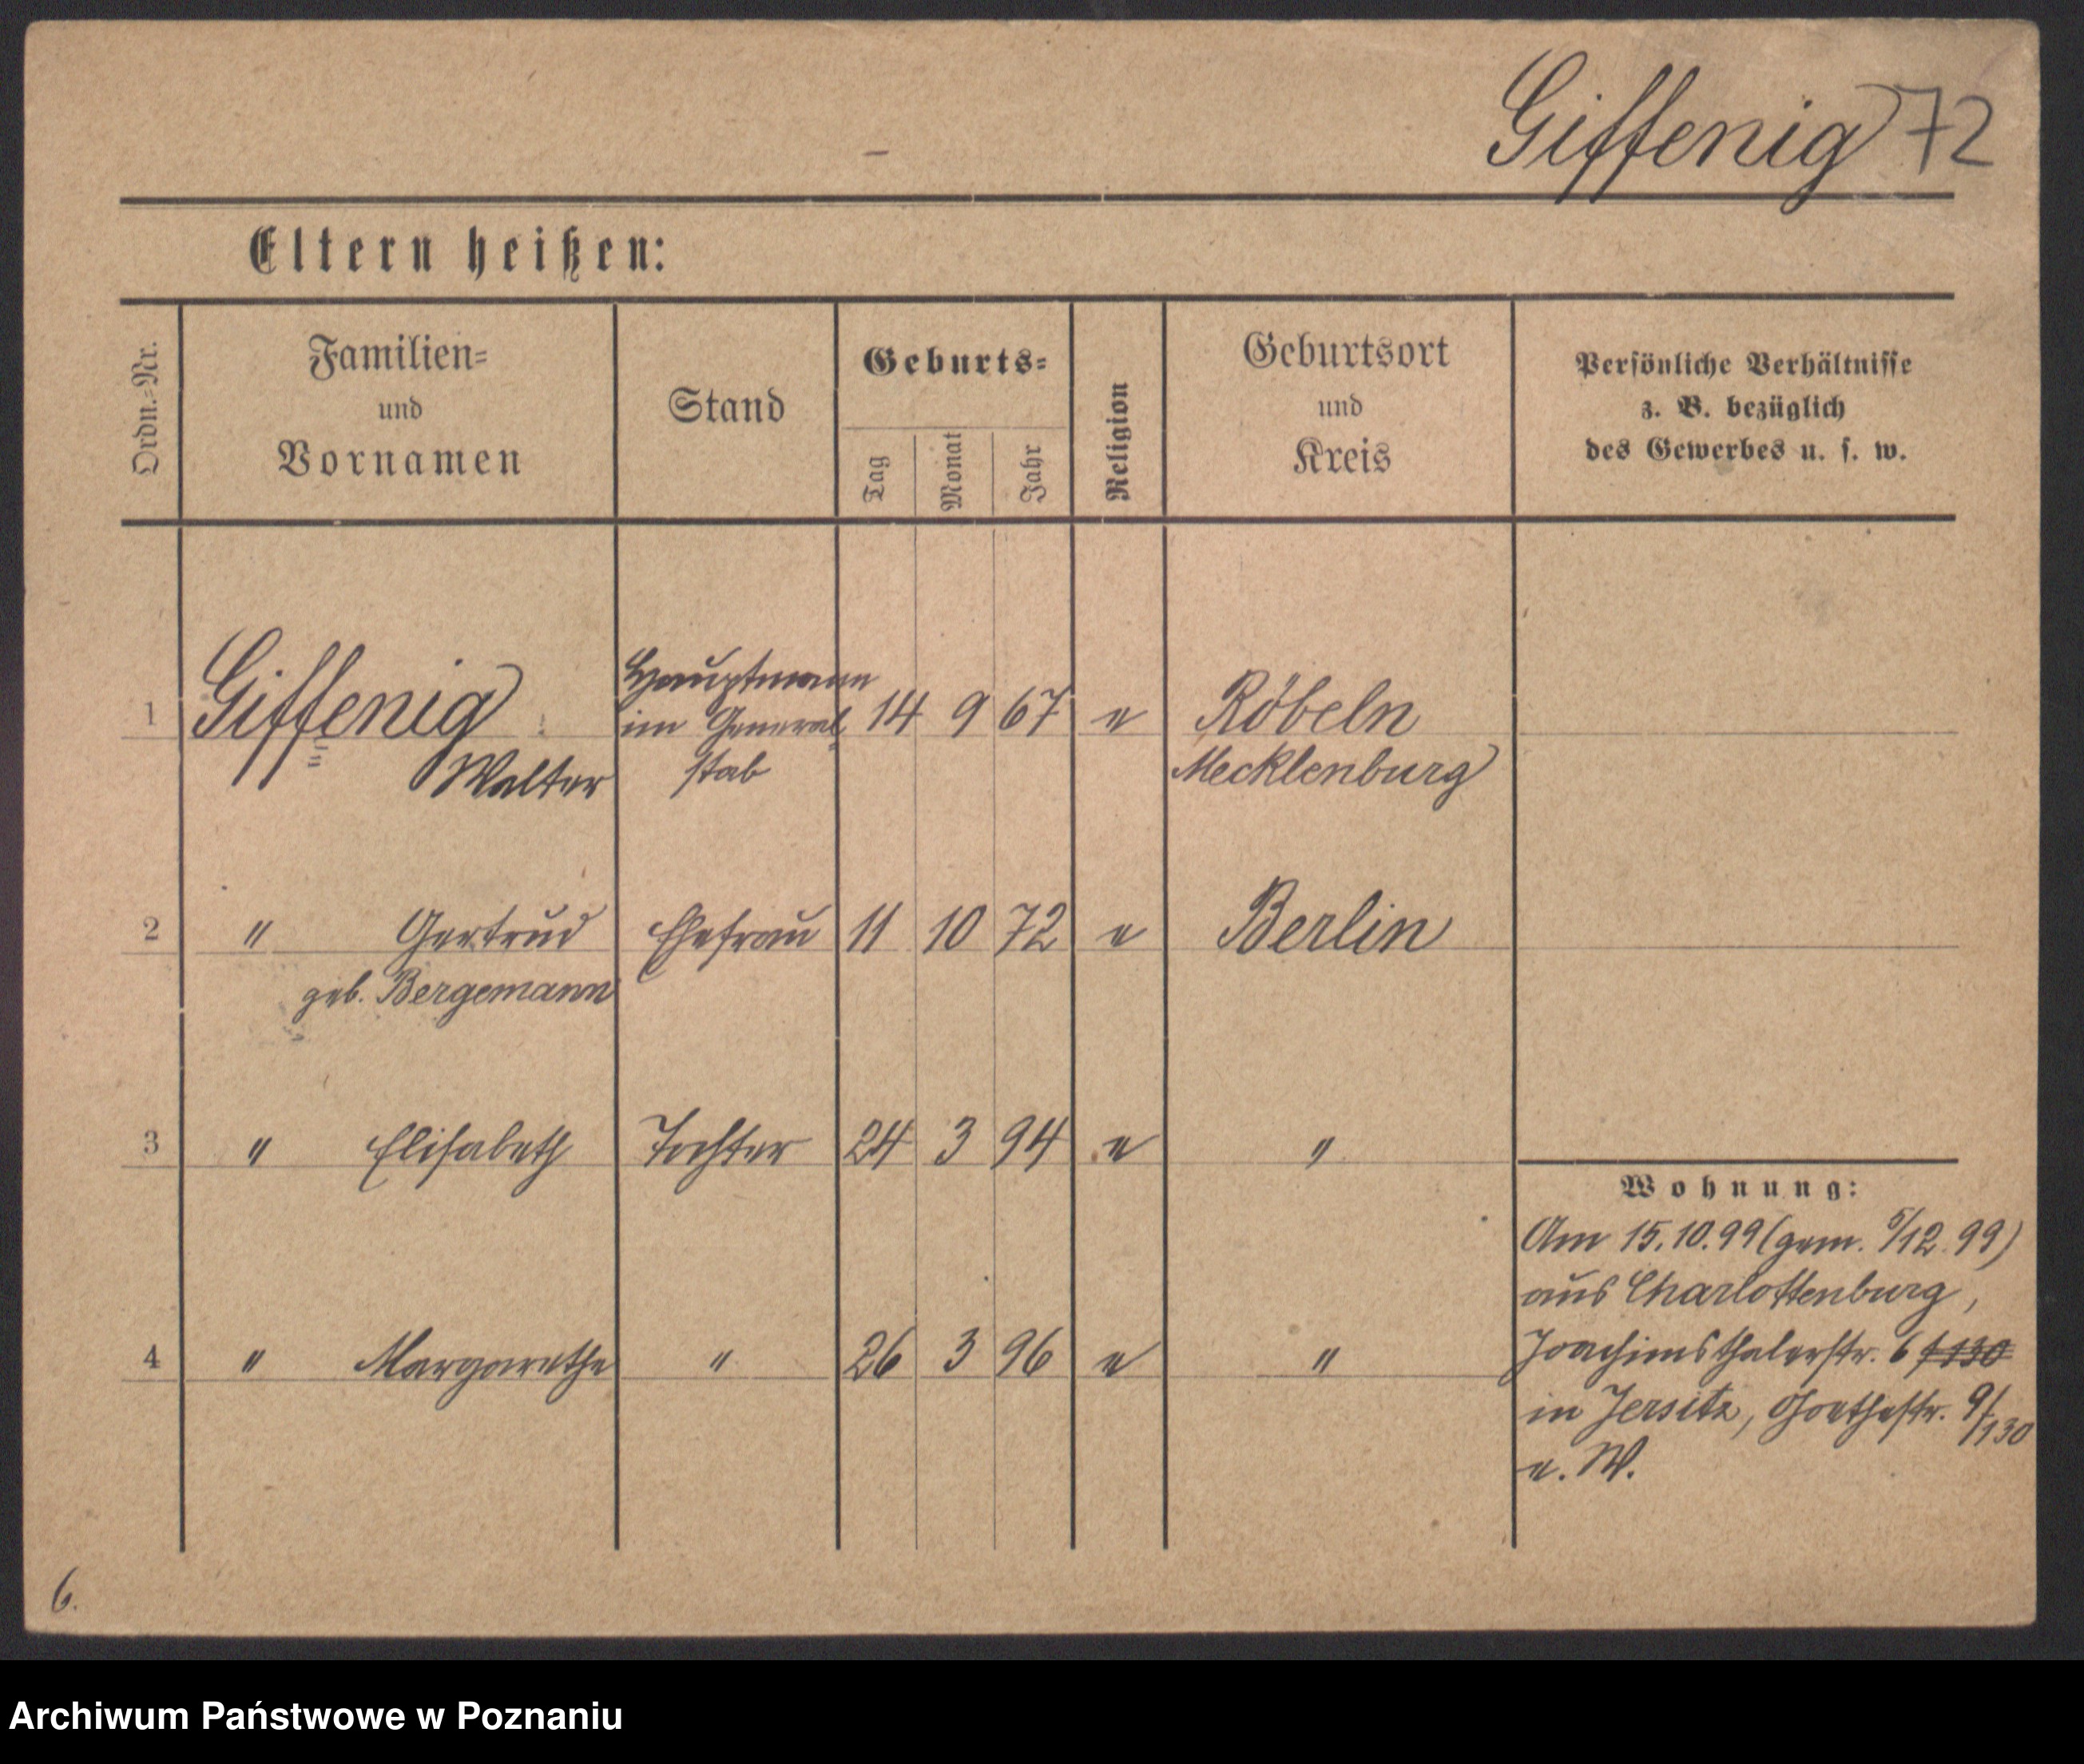 Giffenig 72
Eltern heißen:
Ordn.-Nr.
Familien-
und
Vornamen
Stand
Geburts-
Tag
Monat
Jahr
Religion
Geburtsort
und
Kreis
Persönliche Verhältnisse
z. B. bezüglich
des Gewerbes u. s. w.
1 Giffenig Hauptmann im General- 14 9 67 e Röbeln
Walter stab Mecklenburg
2 " Gertrud Ehefrau 11 10 72 e Berlin
geb. Bergemann
3 " Elisabeth Tochter 24 3 94 e "
4 " Margarethe " 26 3 96 e "
Wohnung:
Am 15.10.99 (gem. 5/12.99)
aus Charlottenburg,
Joachimsthalerstr. 6
in Jersitz, Goethestr. 9/130
e. W.
6.
Archiwum Państwowe w Poznaniu